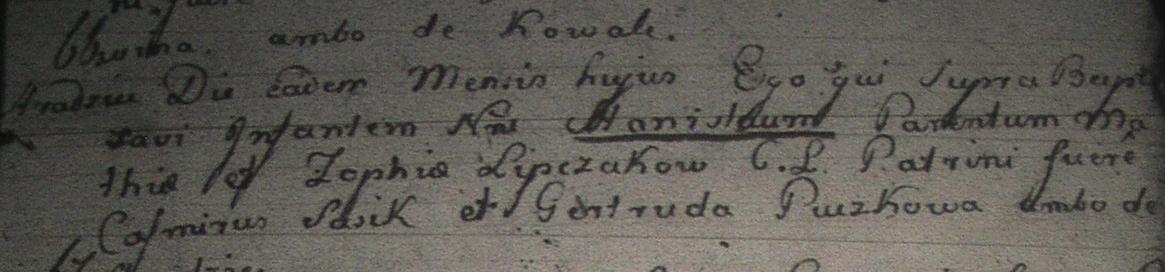 ambo de Kowale.
Die eadem Mensis hujus Ego qui supra Bapti
savi Infantem Nne Stanislaum Parentum Ma
thiæ et Zophiæ Lipczakow C. L. Patrini fuere
Casmirus et Gertruda ambo de